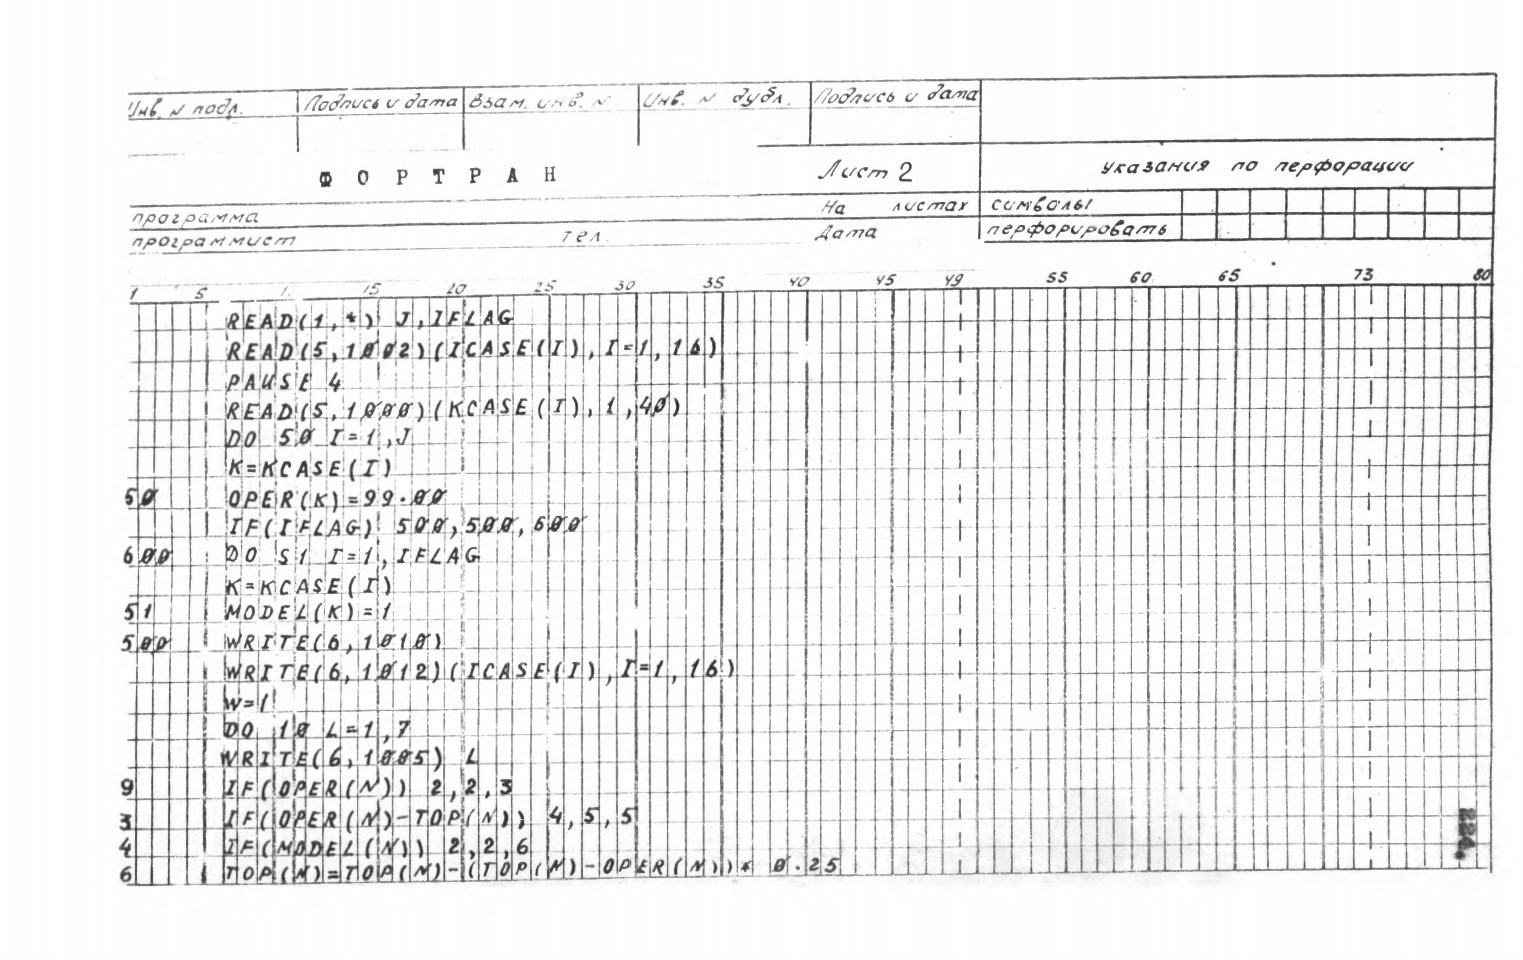 Инв. N подл. Подпись и дата Взам. инв. N Инв. N дубл. Подпись и дата
ФОРТРАН Лист 2 указания по перфорации
программа На листах символы
программист тел. Дата перфорировать
1 5 15 20 25 30 35 40 45 49 55 60 65 73 80
READ(1,*) J,IFLAG
READ(5,1002)(ICASE(I),I=1,16)
PAUSE 4
READ(5,1000)(KCASE(I),1,40)
DO 50 I=1,J
K=KCASE(I)
50 OPER(K)=99.00
IF(IFLAG) 500,500,600
600 DO S1 I=1,IFLAG
K=KCASE(I)
51 MODEL(K)=1
500 WRITE(6,1010)
WRITE(6,1012)(ICASE(I),I=1,16)
W=1
DO 10 L=1,7
WRITE(6,1005) L
9 IF(OPER(N)) 2,2,3
3 IF(OPER(N)-TOP(N)) 4,5,5
4 IF(MODEL(N)) 2,2,6
6 TOP(N)=TOP(N)-(TOP(N)-OPER(N))* 0.25
224.